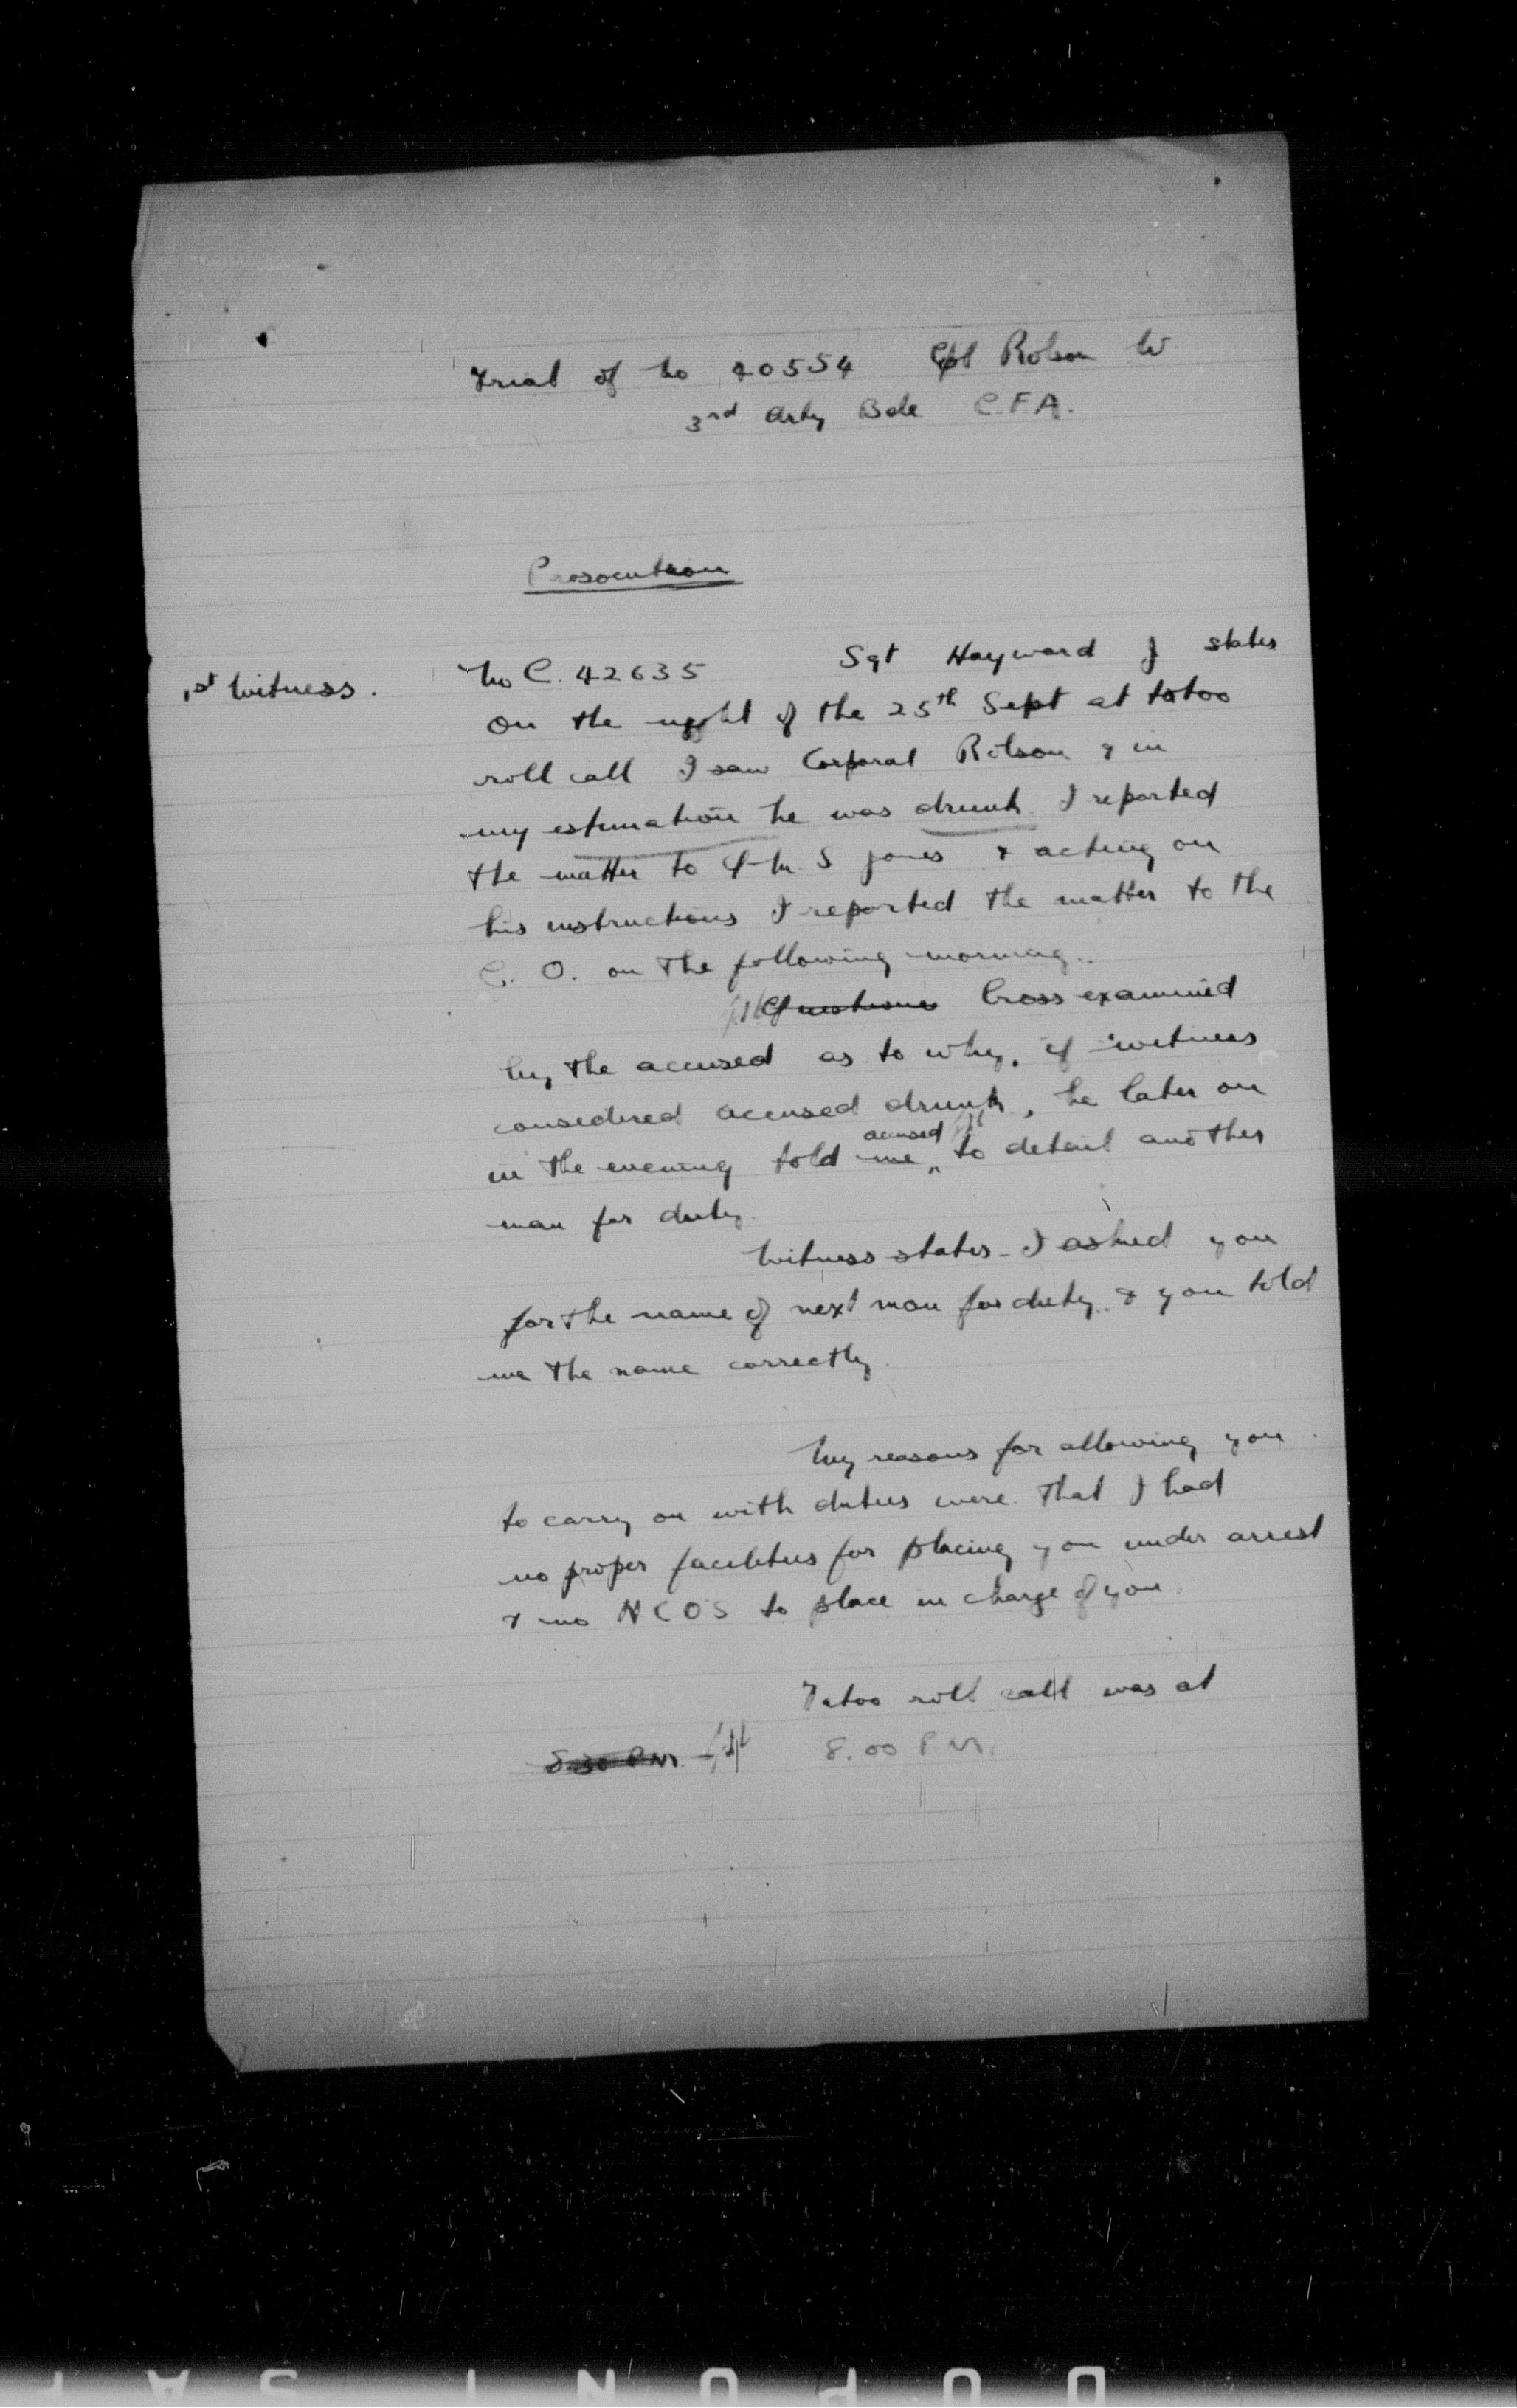 Trial of No 40554 Cpl Robson W
3rd Arty Bde C.F.A.
Prosocution
1st Witness.
No C. 42635 Sgt Hayward J states
On the night of the 25th Sept at tatoo
roll call I saw Corporal Robson & in
my estimation he was drunk. I reported
the matter to Q.M.S Jones & acting on
his instructions I reported the matter to the
C. O. on the following morning..
Questions Cross examined
by the accused as to why, if witness
considered accused drunk, he later on
in the evening told me accused to detail another
man for duty.
Witness states - I asked you
for the name of next man for duty. & you told
me the name correctly.
My reasons for allowing you
to carry on with duties were that I had
no proper facilities for placing you under arrest
& no NCOS to place in charge of you.
Tatoo roll call was at
8.30 P.M. 8.00 P.M.